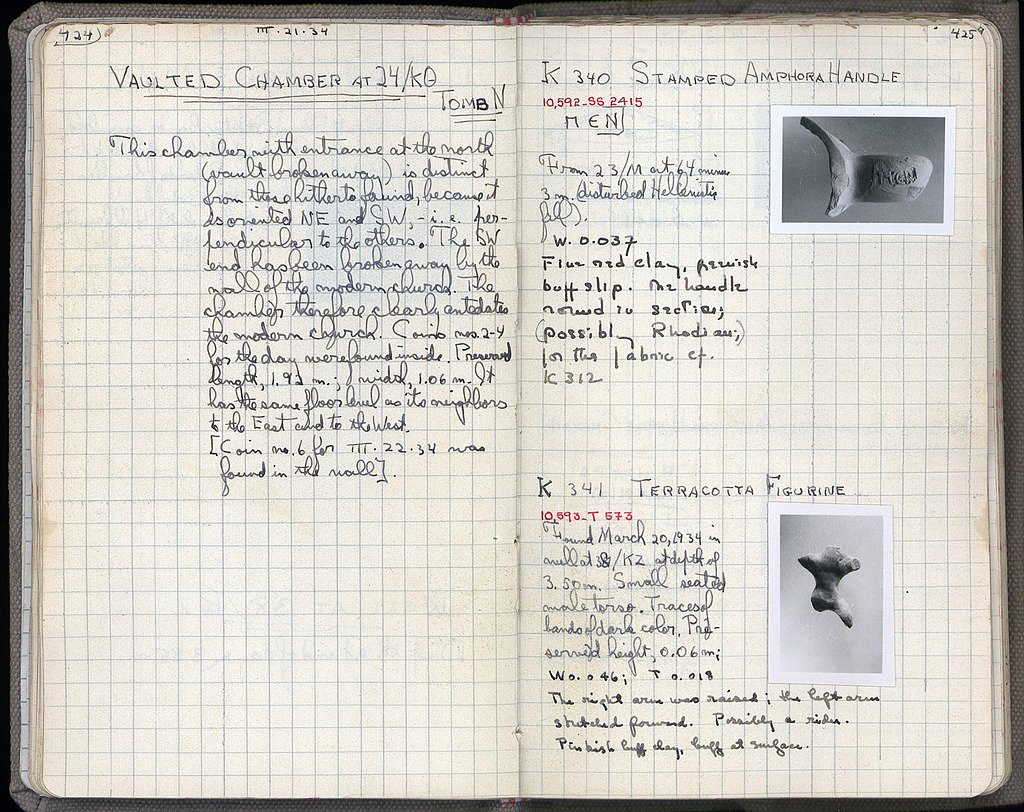 424
III·21·34
VAULTED CHAMBER AT 24/ΚΘ
TOMB N
This chamber with entrance at the north
(vault broken away) is distinct
from those hitherto found, because it
is oriented NE and SW, - i.e. per-
pendicular to the others. The SW
end has been broken away by the
wall of the modern church. The
chamber therefore clearly antedates
the modern church. Coins nos. 2-4
for the day were found inside. Preserved
length, 1.92 m.; width, 1.06 m. It
has the same floor level as its neighbors
to the East and to the West.
[Coin no. 6 for III·22·34 was
found in the wall].
425
K 340 STAMPED AMPHORA HANDLE
10,592-SS 2415
ΜΕΝ
From 23/Μ at, 64 minus
3 m. (disturbed Hellenistic
fill).
W. 0.037
Fine red clay, greenish
buff slip. The handle
round in section;
(possibly Rhodian;)
for the fabric cf.
K 312
K 341 TERRACOTTA FIGURINE
10,593-T 573
Found March 20, 1934 in
well at /ΚΖ at depth of
3.50 m. Small seated
male torso. Traces of
bands of dark color. Pre-
served height, 0.06 m;
W 0.046; T 0.018
The right arm was raised; the left arm
stretched forward. Possibly a rider.
Pinkish buff clay, buff at surface.